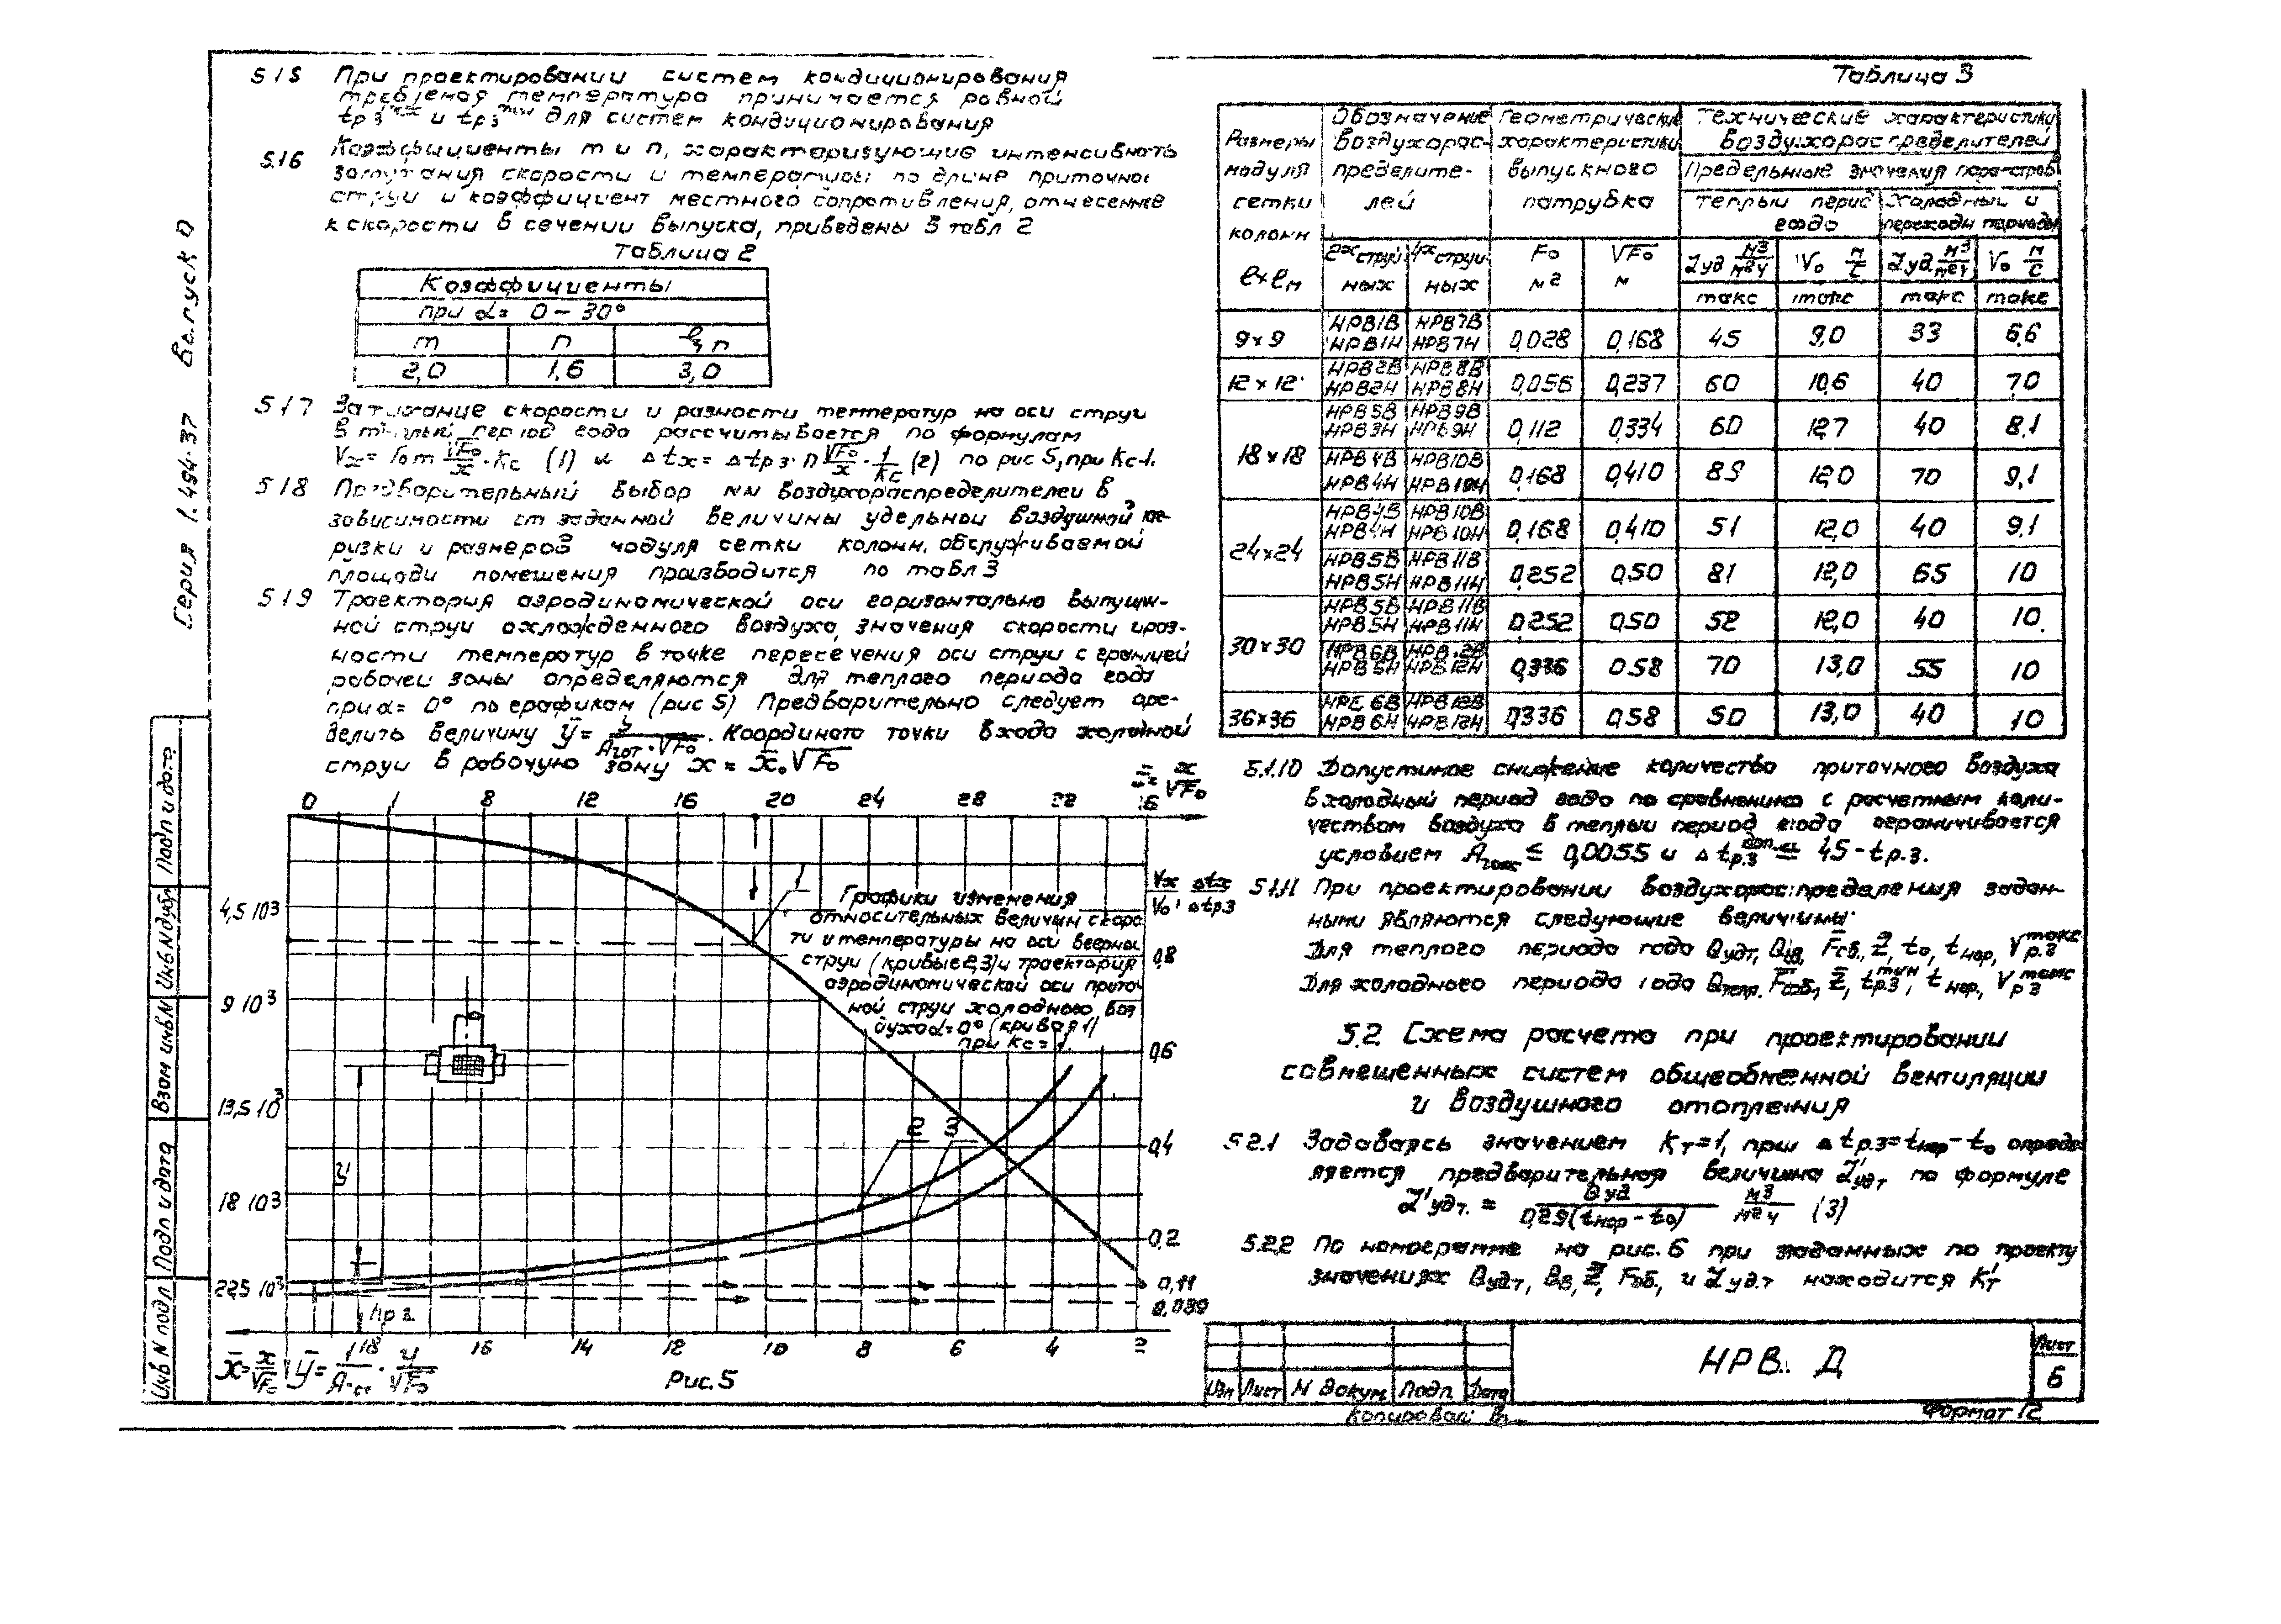 Серия 1.494-37 Выпуск 0
5.1.5 При проектировании систем кондиционирования
требуемая температура принимается равной
tр.з и tр.з для систем кондиционирования
5.1.6 Коэффициенты m и n, характеризующие интенсивность
затухания скорости и температуры по длине приточной
струи и коэффициент местного сопротивления, отнесенные
к скорости в сечении выпуска, приведены в табл 2
Таблица 2
Коэффициенты
при α= 0-30°
m n ξп
2,0 1,6 3,0
5.1.7 Затухание скорости и разности температур на оси струи
в теплый период года рассчитывается по формулам
Vx= V₀m √F₀/x · Kc (1) и Δtx= Δtр.з· n √F₀/x · 1/Kc (2) по рис 5, при Kc-1.
5.1.8 Предварительный выбор NN воздухораспределителей в
зависимости от заданной величины удельной воздушной наг-
рузки и размеров модуля сетки колонн, обслуживаемой
площади помещения производится по табл 3
5.1.9 Траектория аэродинамической оси горизонтально выпущен-
ной струи охлажденного воздуха, значения скорости и раз-
ности температур в точке пересечения оси струи с границей
рабочей зоны определяются для теплого периода года
при α= 0° по графикам (рис 5) Предварительно следует опре-
делить величину ȳ= y/(Aгот·√F₀). Координата точки входа холодной
струи в рабочую зону x = x̄·√F₀
x̄= x/√F₀
0 1 8 12 16 20 24 28 32 36
4,5 10³
9 10³
13,5 10³
18 10³
22,5 10³
Vx/V₀; Δtx/Δtр.з
0,8
0,6
0,4
0,2
0,11
0,089
1
Графики изменения
относительных величин скорос
ти и температуры на оси веерной
струи (кривые 2,3) и траектория
аэродинамической оси приточ
ной струи холодного воз
духа α=0° (кривая 1)
при Kc = 1.
2 3
y
hр.з.
18 16 14 12 10 8 6 4 2
x̄= x/√F₀; ȳ= 1/Aгот · y/√F₀
Рис. 5
Таблица 3
Размеры модуля сетки колонн ℓ×ℓ м
Обозначение Воздухорас-пределите-лей
2х струй-ных 4х струй-ных
Геометрические характеристики выпускного патрубка
F₀ м² √F₀ м
Технические характеристики Воздухораспределителей
Предельные значения параметров
теплый период года холодный и переходн периоды
Lуд м³/м²ч V₀ м/с Lуд м³/м²ч V₀ м/с
макс макс макс макс
9×9 НРВ1В НРВ1Н НРВ7В НРВ7Н 0,028 0,168 45 9,0 33 6,6
12×12 НРВ2В НРВ2Н НРВ8В НРВ8Н 0,056 0,237 60 10,6 40 7,0
18×18 НРВ3В НРВ3Н НРВ9В НРВ9Н 0,112 0,334 60 12,7 40 8,1
НРВ4В НРВ4Н НРВ10В НРВ10Н 0,168 0,410 89 12,0 70 9,1
24×24 НРВ4В НРВ4Н НРВ10В НРВ10Н 0,168 0,410 51 12,0 40 9,1
НРВ5В НРВ5Н НРВ11В НРВ11Н 0,252 0,50 81 12,0 65 10
30×30 НРВ5В НРВ5Н НРВ11В НРВ11Н 0,252 0,50 52 12,0 40 10
НРВ6В НРВ6Н НРВ12В НРВ12Н 0,336 0.58 70 13,0 55 10
36×36 НРВ6В НРВ6Н НРВ12В НРВ12Н 0,336 0,58 50 13,0 40 10
5.1.10 Допустимое снижение количество приточного воздуха
в холодный период года по сравнению с расчетным коли-
чеством воздуха в теплый период года ограничивается
условием Aгот ≤ 0,0055 и Δtр.з доп. ≤ 45-tр.з.
5.1.11 При проектировании воздухораспределения задан-
ными являются следующие величины:
Для теплого периода года Qудт, Qв, F̄об., Z̄, t₀, tнор, Vр.з макс
Для холодного периода года Qтепл. F̄об, Z̄, tр.з мин, tнор., Vр.з макс
5.2. Схема расчета при проектировании
совмещенных систем общеобменной вентиляции
и воздушного отопления
5.2.1 Задаваясь значением Kт=1, при Δtр.з=tнор-t₀ опреде-
ляется предварительная величина L'удт по формуле
L'удт. = Qуд/(0,29(tнор-t₀)) м³/м²ч (3)
5.2.2 По номограмме на рис. 6 при заданных по проекту
значениях Qудт, Qв, Z̄, F̄об, и Lуд.т находится K'т
Изм Лист N докум Подп. Дата
НРВ. Д
Лист
6
Копировал:
Формат 12
Подп и дата
Инв N дубл
Взам инв N
Подп и дата
Инв N подл